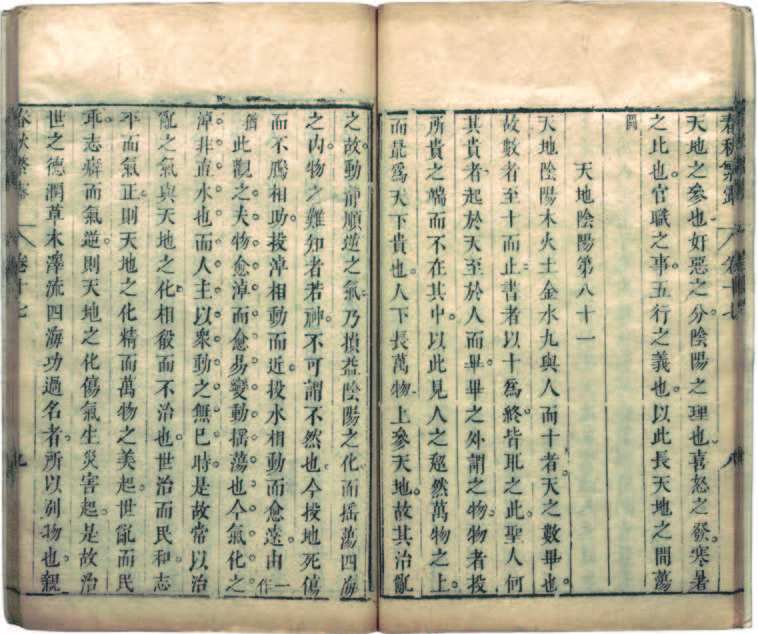 春秋繁露 卷十七 八
天地之參也好惡之分陰陽之理也喜怒之發寒暑
之比也官職之事五行之義也以此長天地之間蕩
闕
天地陰陽第八十一
天地陰陽木火土金水九與人而十者天之數畢也
故數者至十而止書者以十爲終皆取之此聖人何
其貴者起於天至於人而畢畢之外謂之物物者投
所貴之端而不在其中以此見人之超然萬物之上
而最爲天下貴也人下長萬物上參天地故其治亂
之故動靜順逆之氣乃損益陰陽之化而搖蕩四海
之內物之難知者若神不可謂不然也今投地死傷
而不騰相助投淖相動而近投水相動而愈遠由一作
猶此觀之夫物愈淖而愈易變動搖蕩也今氣化之
淖非直水也而人主以衆動之無已時是故常以治
亂之氣與天地之化相殽而不治也世治而民和志
平而氣正則天地之化精而萬物之美起世亂而民
乖志癖而氣逆則天地之化傷氣生災害起是故治
世之德潤草木澤流四海功過名者所以別物也親
春秋繁露 卷十七 九